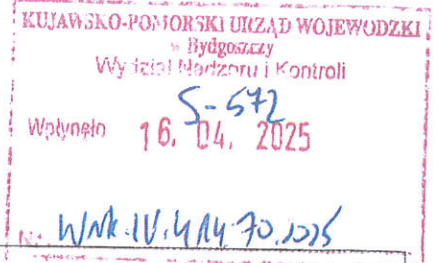 KUJAWSKO-POMORSKI URZĄD WOJEWÓDZKI
w Bydgoszczy
Wydział Nadzoru i Kontroli
S-572
Wpłynęło 16. 04. 2025
WNK.IV.414.70.2025